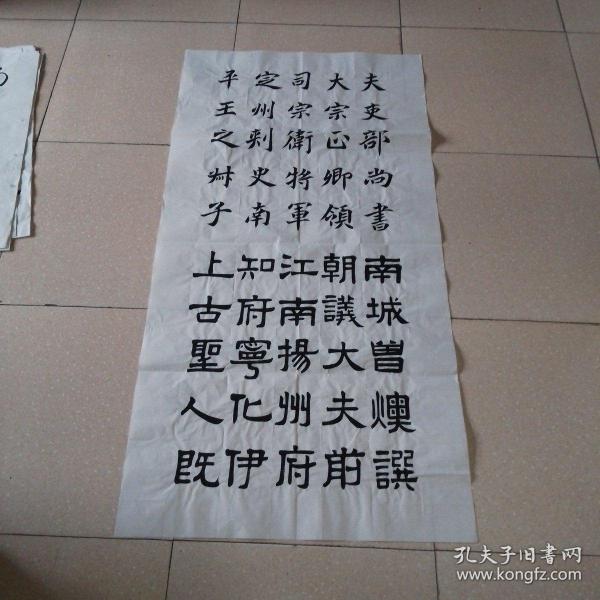 夫吏部尚書
大宗正卿領
司宗衛将軍
定州刺史南
平王之世子
南城曾燠譔
朝議大夫前
江南揚州府
知府寧化伊
上古聖人既
孔夫子旧書网
www.kongfz.com